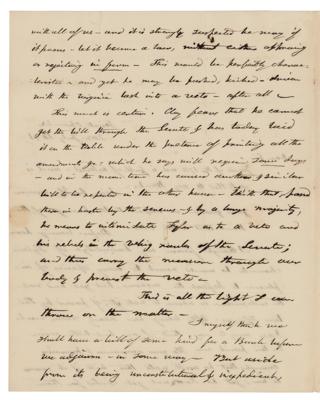 with all of us - and it is strongly suspected he may if
it passes - let it become a law, without either approving
or rejecting in form - This would be perfectly charac-
teristic - and yet he may be pushed, kicked - driven
with the
lash into a veto - after all -
This much is certain. Clay fears that he cannot
get the bill through the Senate & has today laid
it on the table under the pretence of printing all the
amendments &c, which he says will require some days
- and in the mean time has caused another & similar
bill to be reported in the other house - With that, passed
there in haste by the
- & by a large majority,
he means to intimidate Tyler as to a veto and
his rebels in the Whig ranks of the Senate;
and thus carry the measure through our
body & prevent the veto -
This is all the light I can
throw on the matter -
I myself think we
shall have a bill of some kind for a Bank before
we adjourn - in some way - But aside
from its being unconstitutional & inexpedient,